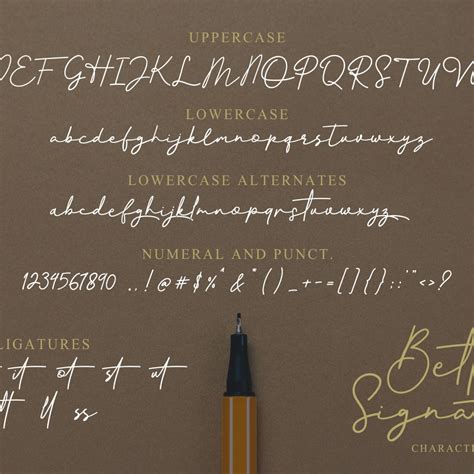 UPPERCASE
DEFGHIJKLMNOPQRSTUV
LOWERCASE
abcdefghijklmnopqrstuvwxyz
LOWERCASE ALTERNATES
abcdefghijklmnopqrstuvwxyz
NUMERAL AND PUNCT.
1234567890 ..!@#$%^&*()_+-=[]{}::'"<>?
LIGATURES
it ot st ut
tt ss
Bett
Signat
CHARACTE